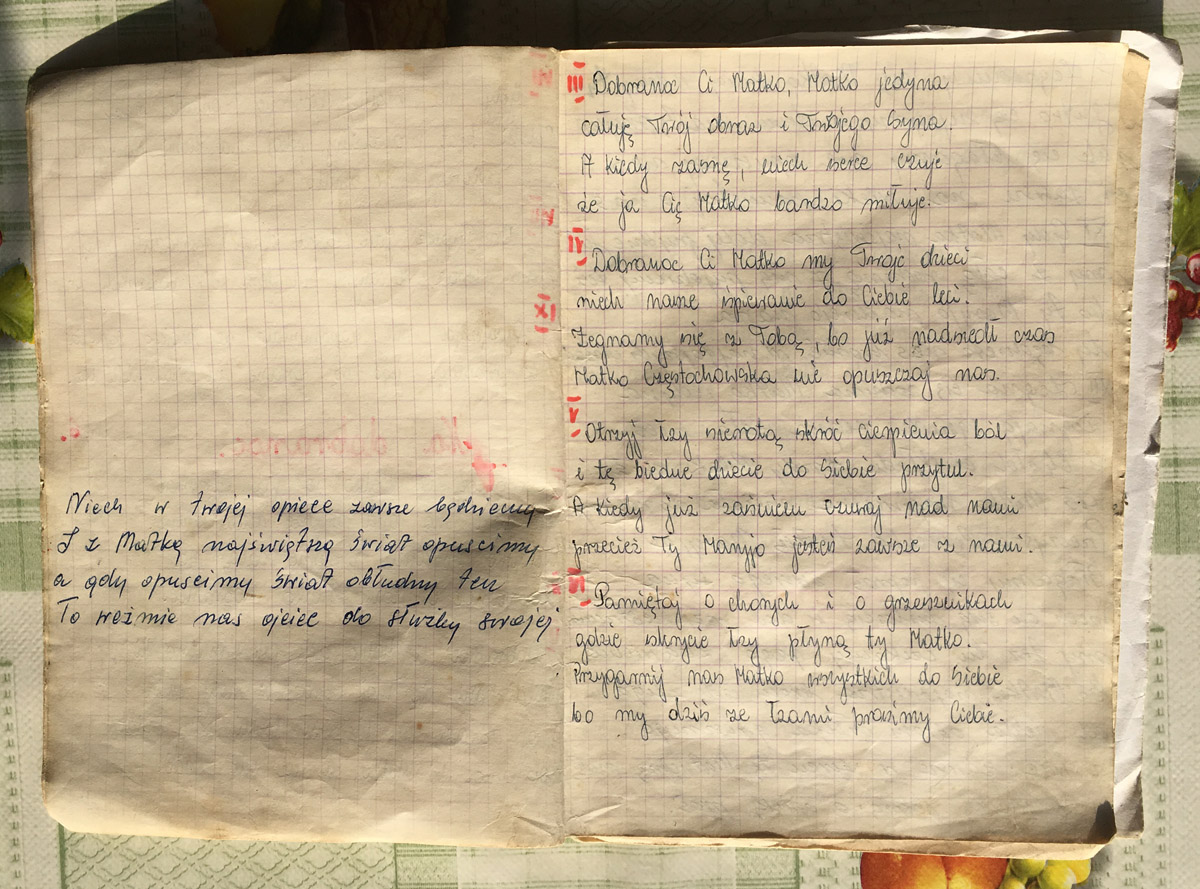 Niech w twojej opiece zawsze będziemy
I z Matką najświętszą świat opuscimy
a gdy opuscimy świat obłudny ten
To weźmie nas ojciec do służby swojej
III Dobranoc Ci Matko, Matko jedyna
całuję Twój obraz i Twojego Syna.
A kiedy zasnę, niech serce czuje
że ja Cię Matko bardzo miłuje.
IV Dobranoc Ci Matko my Twoje dzieci
niech nasze śpiewanie do Ciebie leci.
Żegnamy się z Tobą, bo już nadszedł czas
Matko Częstochowska nie opuszczaj nas.
V Otrzyj łzy sierotą skróć cierpienia ból
i tę biedne dziecie do Siebie przytul.
A kiedy już zaśniem czuwaj nad nami
przecież Ty Maryjo jesteś zawsze z nami.
VI Pamiętaj o chorych i o grzesznikach
gdzie skrycie łzy płyną ty Matko.
Przygarnij nas Matko wszystkich do Siebie
bo my dziś ze łzami prosimy Ciebie.